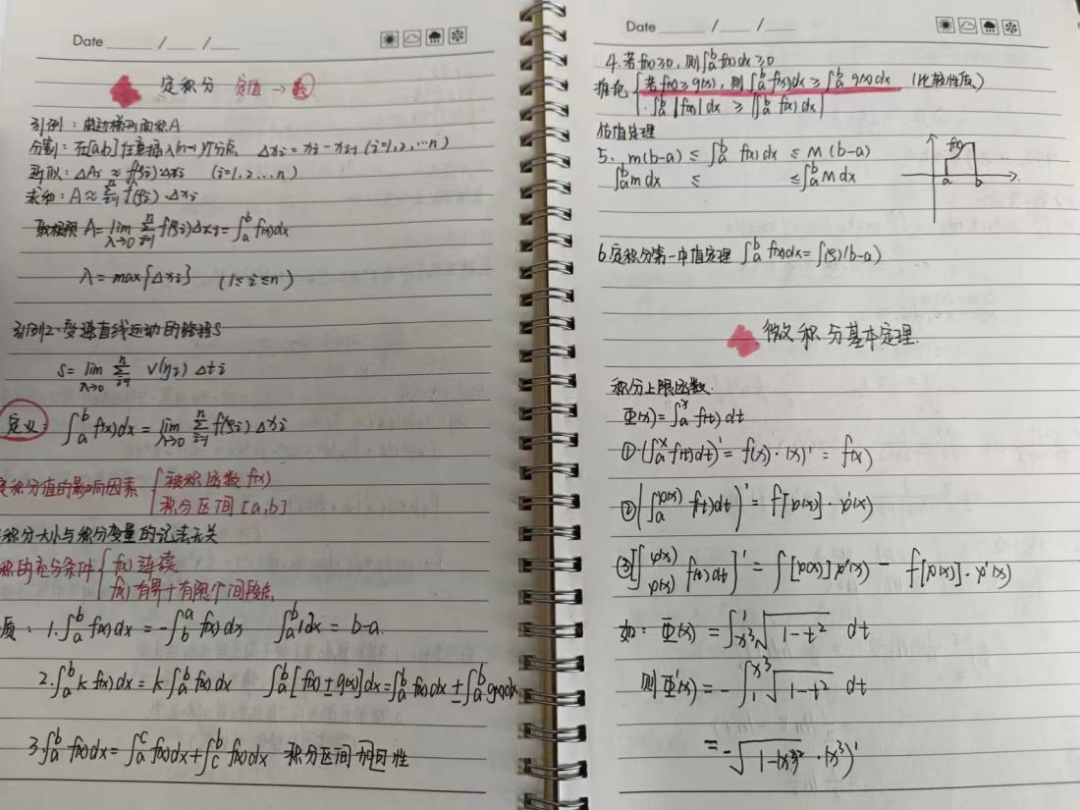 Date ___/___/___
定积分 定值→数
引例：曲边梯形面积A
分割：在[a,b]任意插入(n-1)个分点 Δxi = xi - xi-1 (i=1,2,…n)
近似：ΔAi ≈ f(ξi)·Δxi (i=1,2…n)
求和：A≈ Σ(i=1→n) f(ξi)·Δxi
取极限 A= lim(λ→0) Σ(i=1→n) f(ξi)Δxi = ∫_a^b f(x)dx
λ = max{Δxi} (1≤i≤n)
引例2.变速直线运动的路程S
S= lim(λ→0) Σ(i=1→n) v(ηi) Δti
定义: ∫_a^b f(x)dx = lim(λ→0) Σ(i=1→n) f(ξi) Δxi
定积分值的影响因素 { 被积函数 f(x)
积分区间 [a,b]
积分大小与积分变量的记法无关
积的充分条件 { f(x) 连续
f(x) 有界+有限个间断点
质：1. ∫_a^b f(x)dx = -∫_b^a f(x)dx ∫_a^b 1dx = b-a.
2. ∫_a^b k f(x)dx = k∫_a^b f(x)dx ∫_a^b [f(x)±g(x)]dx = ∫_a^b f(x)dx ± ∫_a^b g(x)dx
3. ∫_a^b f(x)dx = ∫_a^c f(x)dx + ∫_c^b f(x)dx 积分区间可加性
Date ___/___/___
4.若f(x)≥0,则∫_a^b f(x)dx≥0
推论 { 若f(x)≥g(x),则∫_a^b f(x)dx ≥ ∫_a^b g(x)dx (比较性质)
∫_a^b |f(x)|dx ≥ |∫_a^b f(x)dx|
估值定理
5. m(b-a) ≤ ∫_a^b f(x)dx ≤ M(b-a)
∫_a^b m dx ≤ ≤ ∫_a^b M dx
f(x)
a b
6.定积分第一中值定理 ∫_a^b f(x)dx = f(ξ)(b-a)
微积分基本定理.
积分上限函数.
Φ(x)= ∫_a^x f(t)dt
① (∫_a^x f(t)dt)' = f(x)·(x)' = f(x)
② (∫_a^φ(x) f(t)dt)' = f[φ(x)]·φ'(x)
③ [∫_φ(x)^ψ(x) f(t)dt]' = f[ψ(x)]ψ'(x) - f[φ(x)]·φ'(x)
如：Φ(x) = ∫_x³^1 √(1-t²) dt
则Φ'(x) = -∫_1^x³ √(1-t²) dt
= -√(1-(x³)²)·(x³)'